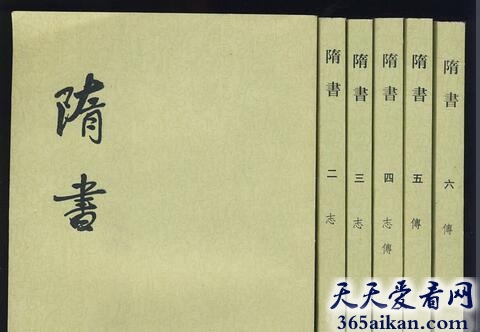 隋書
隋書
二
志
隋書
三
志
隋書
四
志傳
隋書
五
傳
隋書
六
傳
天天爱看网
365aikan.com